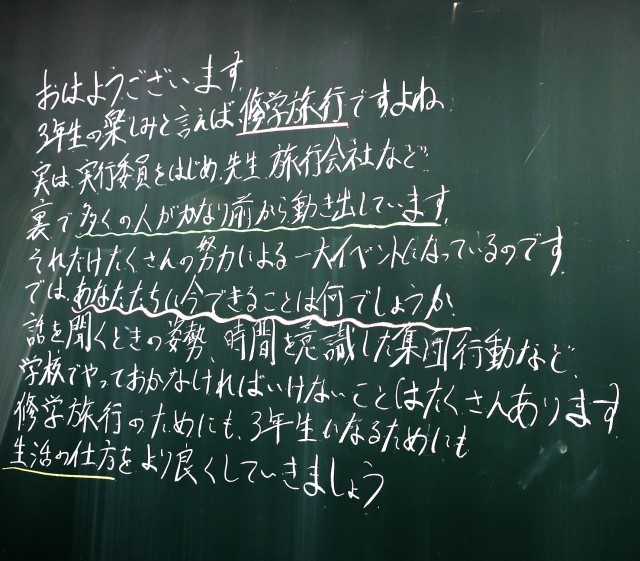 おはようございます
3年生の楽しみと言えば、修学旅行ですよね。
実は、実行委員をはじめ、先生、旅行会社など
裏で多くの人がかなり前から動き出しています。
それだけたくさんの努力による一大イベントになっているのです。
では、あなたたちに今できることは何でしょうか。
話を聞くときの姿勢、時間を意識した集団行動など、
学校でやっておかなければいけないことはたくさんあります
修学旅行のためにも、3年生になるためにも
生活の仕方をより良くしていきましょう